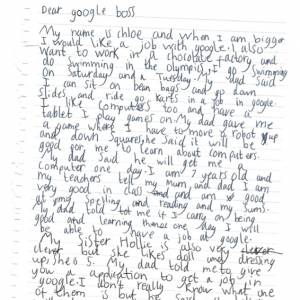 Dear google boss
My name is chloe and when I am bigger
I would like a job with google. I also
want to work in a chocolate factory and
do swimming in the olympics. I go swimming
on Saturday and a Tuesday. My dad said
I can sit on bean bags and go down
slides and ride go karts in a job in google.
I like computers too and have a
tablet I play games on. My dad gave me
a game where I have to move a robot up
and down squares, he said it will be
good for me to learn about computers.
My dad said he will get me a
computer one day. I am 7 years old and
my teachers tell my mum and dad I am
very good in class and am good
at my spelling and reading and my sums.
my dad told me if I carry on being
good and learning then one day I will
be able to have a job at google.
My sister Hollie is also very
clever but she likes dolls and dressing
up, she is 5. My dad told me to give
you a application to get a job in
google. I don't really know what one
of them is but he said